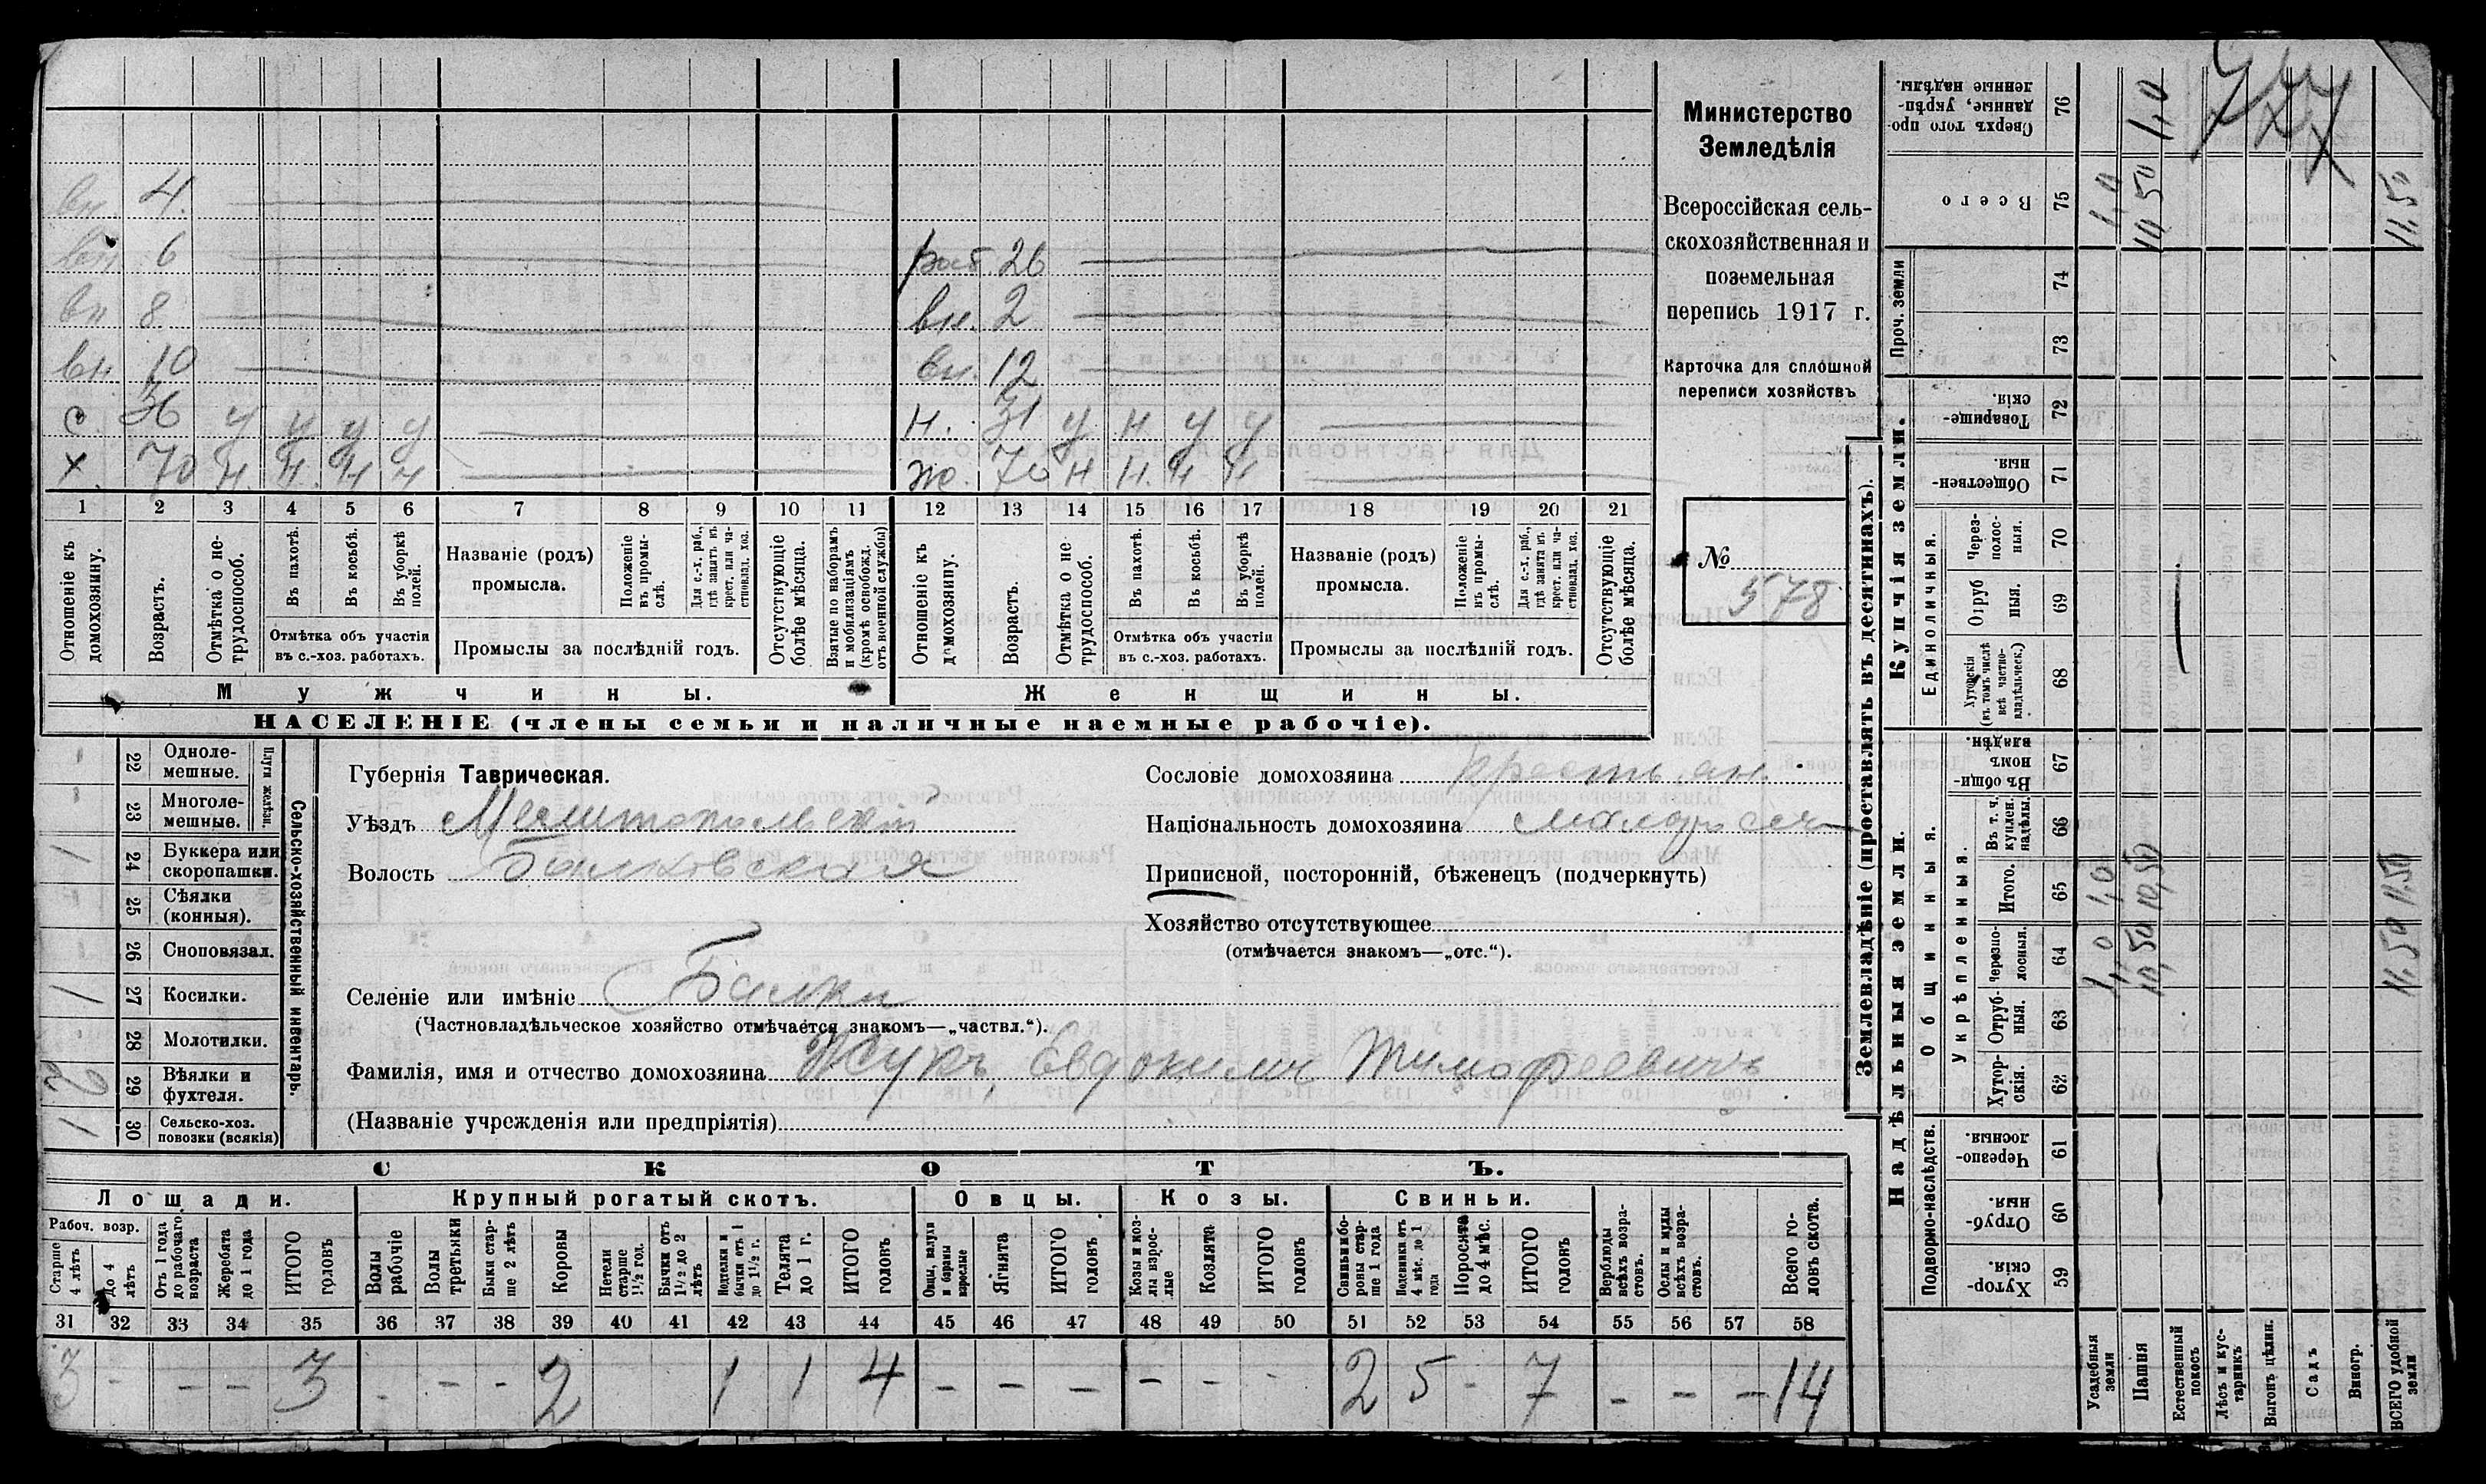 вн. 4.
вн 6
раб 26
вн 8
вн. 2
вн. 10
вн. 12
с. 36 у у у у
н. 31 у н. у у
х. 70 н. н. н н
ж. 70 н н. н н
1 2 3 4 5 6 7 8 9 10 11 12 13 14 15 16 17 18 19 20 21
Отношеніе къ домохозяину.
Возрастъ.
Отмѣтка о нетрудоспособ.
Въ пахотѣ.
Въ косьбѣ.
Въ уборкѣ полей.
Отмѣтка объ участіи
въ с.-хоз. работахъ.
Названіе (родъ)
промысла.
Положеніе въ промыслѣ.
Для с.-х. раб., гдѣ занятъ въ крест. или частновлад. хоз.
Промыслы за послѣдній годъ.
Отсутствующіе болѣе мѣсяца.
Взятые по наборамъ и мобилизаціямъ (кромѣ освобожд. отъ военной службы)
Отношеніе къ домохозяину.
Возрастъ.
Отмѣтка о нетрудоспособ.
Въ пахотѣ.
Въ косьбѣ.
Въ уборкѣ полей.
Отмѣтка объ участіи
въ с.-хоз. работахъ.
Названіе (родъ)
промысла.
Положеніе въ промыслѣ.
Для с.-х. раб., гдѣ занятъ въ крест. или частновлад. хоз.
Промыслы за послѣдній годъ.
Отсутствующіе болѣе мѣсяца.
Мужчины.
Женщины.
НАСЕЛЕНІЕ (члены семьи и наличные наемные рабочіе).
Министерство
Земледѣлія
Всероссійская сель-
скохозяйственная и
поземельная
перепись 1917 г.
Карточка для сплошной
переписи хозяйствъ
№
578
22 Одноле-
мешные.
23 Многоле-
мешные.
Плуги желѣзн.
1 24 Буккера или
скоропашки.
25 Сѣялки
(конныя).
26 Сноповязал.
1 27 Косилки.
28 Молотилки.
29 Вѣялки и
фухтеля.
1 30 Сельско-хоз.
повозки (всякія)
Сельско-хозяйственный инвентарь.
Губернія Таврическая.
Уѣздъ Мелитопольскій
Волость Балковская
Сословіе домохозяина крестьян.
Національность домохозяина малоросс
Приписной, посторонній, бѣженецъ (подчеркнуть)
Хозяйство отсутствующее
(отмѣчается знакомъ—„отс.“).
Селеніе или имѣніе Балки
(Частновладѣльческое хозяйство отмѣчается знакомъ—„частвл.“).
Фамилія, имя и отчество домохозяина Жукъ, Евдокимъ Тимофеевичъ
(Названіе учрежденія или предпріятія)
СКОТЪ.
Лошади. Крупный рогатый скотъ. Овцы. Козы. Свиньи.
Рабоч. возр.
Старше 4 лѣтъ
До 4 лѣтъ
Отъ 1 года до рабочаго возраста
Жеребята до 1 года
ИТОГО головъ
Волы рабочіе
Волы третьяки
Быки старше 2 лѣтъ
Коровы
Нетели старше 1½ год.
Бычки отъ 1½ до 2 лѣтъ
Подтелки и бычки отъ 1 до 1½ г.
Телята до 1 г.
ИТОГО головъ
Овцы, валухи и бараны взрослые
Ягнята
ИТОГО головъ
Козы и козлы взрослые
Козлята
ИТОГО головъ
Свиньи боровы старше 1 года
Подсвинки отъ 4 мѣс. до 1 года
Поросята до 4 мѣс.
ИТОГО головъ
Верблюды всѣхъ возрастовъ.
Ослы и мулы всѣхъ возрастовъ.
Всего головъ скота.
31 32 33 34 35 36 37 38 39 40 41 42 43 44 45 46 47 48 49 50 51 52 53 54 55 56 57 58
3 - - - 3 - - - 2 1 1 4 - - - - - - 2 5 - 7 - - - 14
Землевладѣніе (проставлять въ десятинахъ).
Купчія земли.
Надѣльныя земли.
Сверхъ того проданные, укрѣпленные надѣлы. 76 1,0
Всего 75 1,0 10,50 11,50
Проч. земли
74
73
Товарищескія. 72
Общественныя. 71
Единоличныя.
Черезполосныя. 70
Отрубныя. 69
Хуторскія (въ томъ числѣ всѣ частновладѣльческ.) 68
Въ общинномъ владѣн. 67
Общинныя.
Укрѣпленныя.
Въ т. ч. куплен. надѣлы. 66
Итого. 65 1,0 10,50 11,50
Черезполосныя. 64 1,0 10,50 11,50
Отрубныя. 63
Хуторскія. 62
Подворно-наслѣдств.
Черезполосныя. 61
Отрубныя. 60
Хуторскія. 59
Усадебныя земли
Пашня
Естественный покосъ
Лѣсъ и кустарникъ
Выгонъ цѣлин.
Садъ
Виногр.
ВСЕГО удобной земли